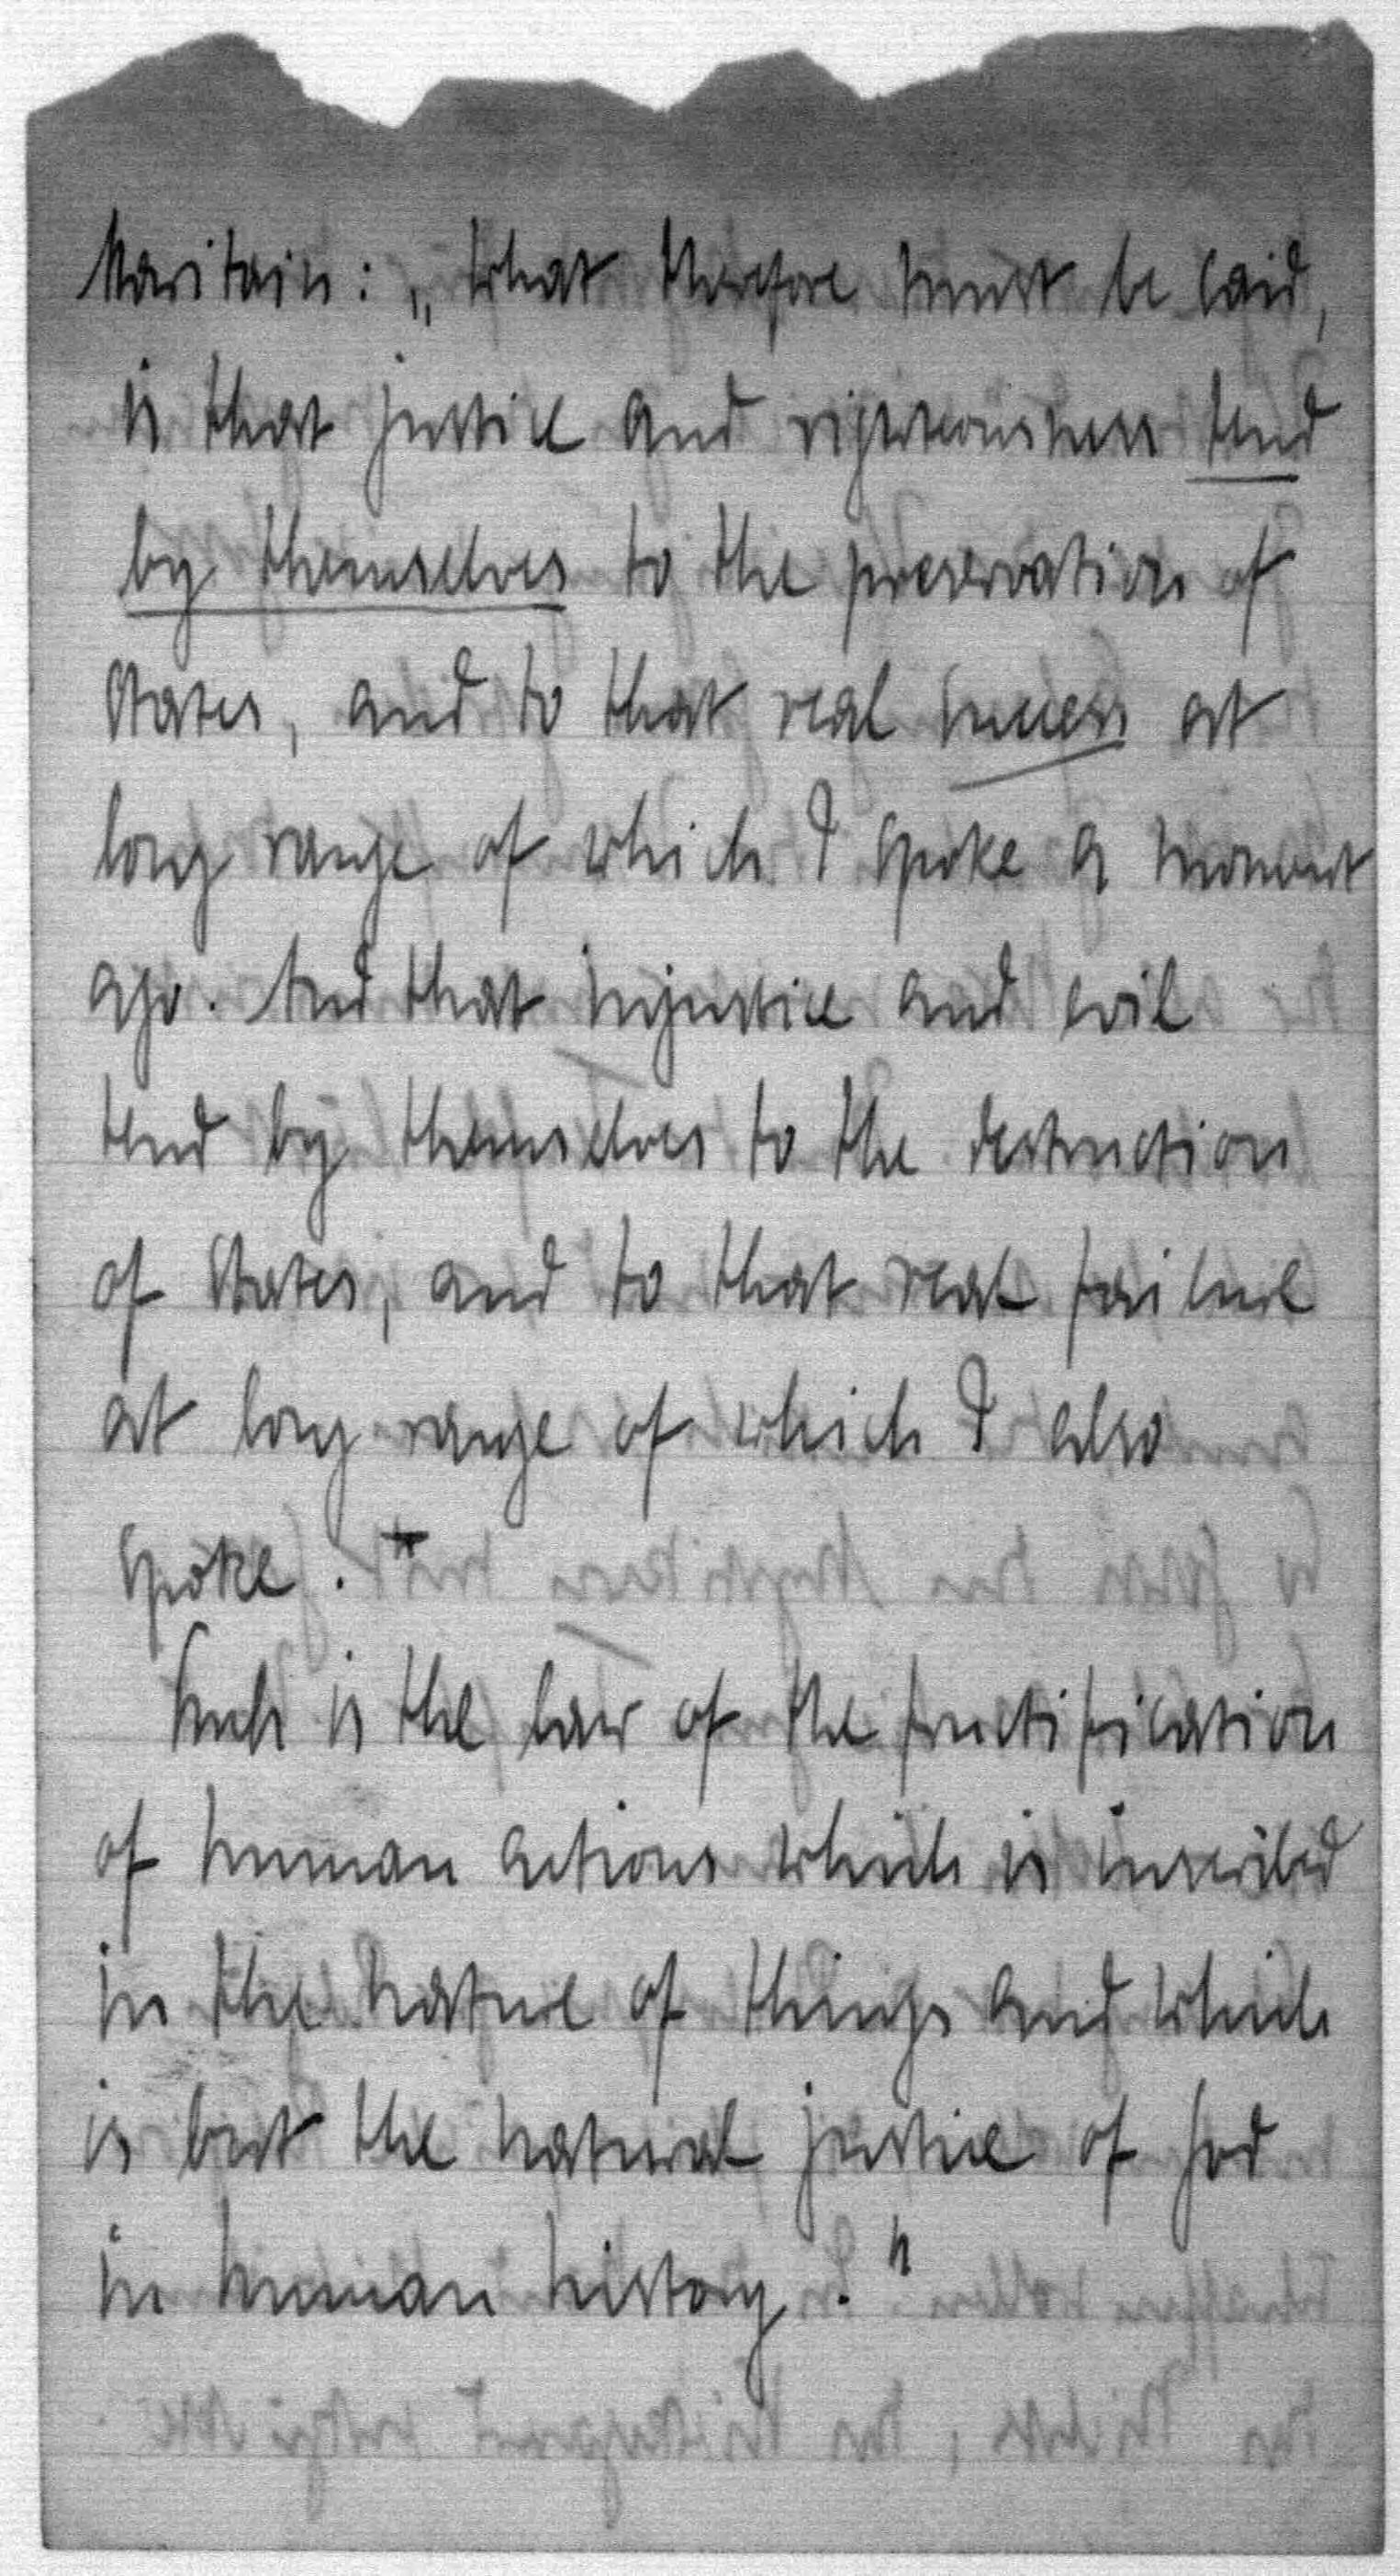 Maritain: „What therefore must be said,
is that justice and righteousness tend
by themselves to the preservation of
States, and to that real success at
long range of which I spoke a moment
ago. And that injustice and evil
tend by themselves to the destruction
of States, and to that real failure
at long range of which I also
spoke. *
Such is the law of the fructification
of human actions which is inscribed
in the nature of things and which
is but the natural justice of God
in human history."